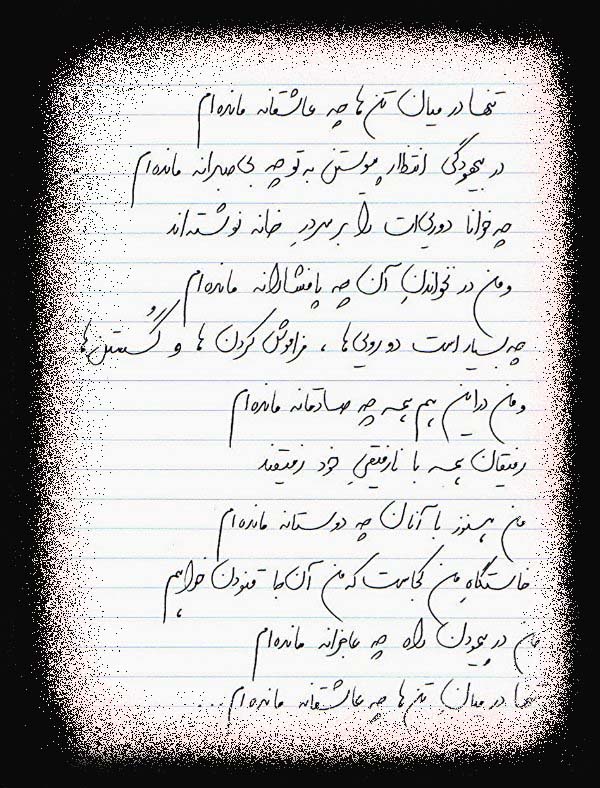 تنها در میان تن‌ها چه عاشقانه مانده‌ام
در بیهودگی انتظار پیوستن به تو چه بی‌صبرانه مانده‌ام
چه خوانا دوری‌ات را بر سردر خانه نوشته‌اند
و من در نخواندنِ آن چه پافشارانه مانده‌ام
چه بسیار است دورویی‌ها ، فراموش کردن ها و گسستن‌ها
و من در این همه چه صادقانه مانده‌ام
رفیقان همه با نارفیقیِ خود رفیقند
من هنوز با آنان چه دوستانه مانده‌ام
خاستگاهِ من کجاست که من آن‌جا غنودن خواهم
من در پیمودن راه چه عاجزانه مانده‌ام
تنها در میانِ تن‌ها چه عاشقانه مانده‌ام ...